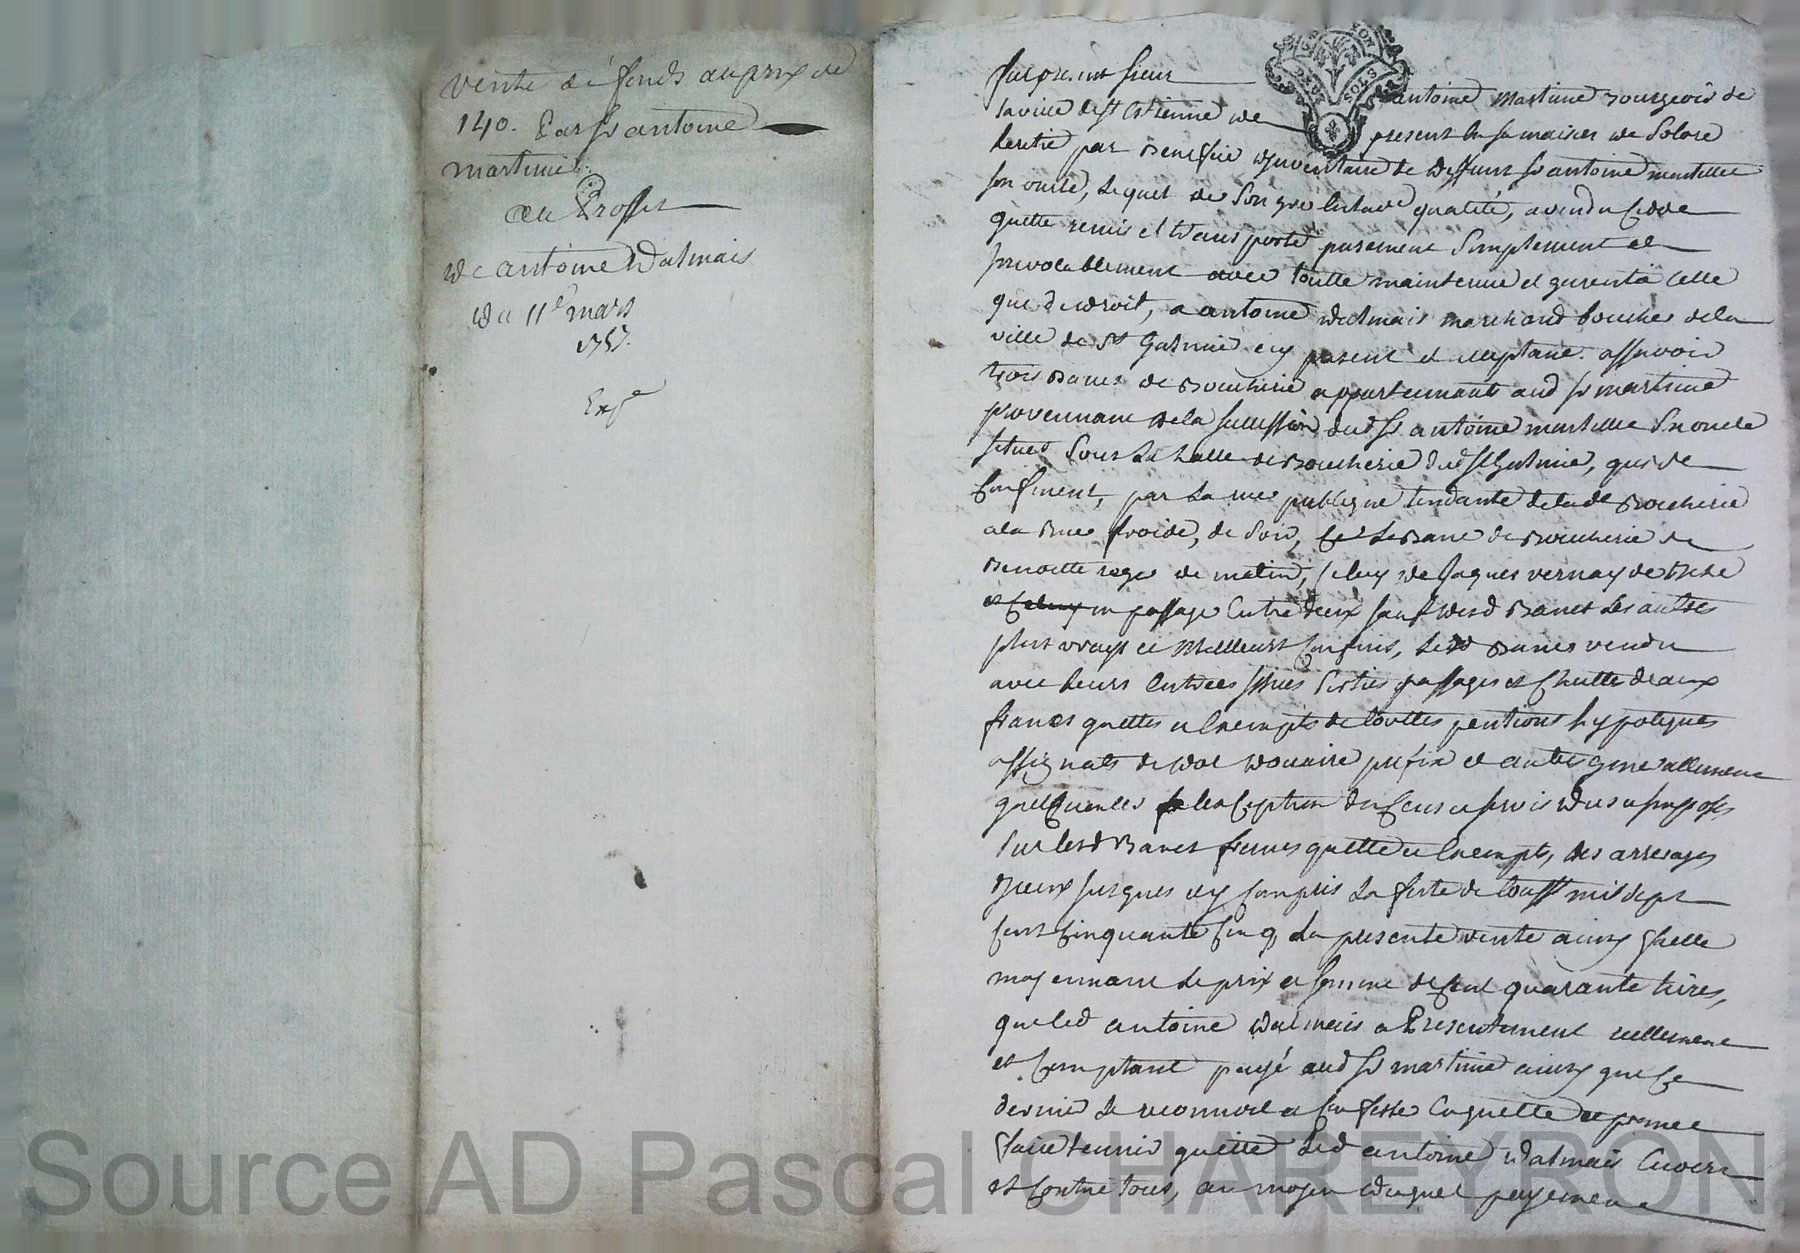 vente de fonds au prix de
140. Par sr antoine
martinie
au Proffit
de antoine Dalmais
du 11e mars
1757.
Expe
fut present sieur antoine martinie Bourgeois de
la ville de st Estienne de present en sa maison de Solore
heritié par Benefice d'jnventaire de deffunt sr antoine
son oncle, lequel de son gre en lade qualité, a vendu cedde
quitte remis et transporté purement simplement et
jrrevocablement avec toutte maintenue et garentie telle
que de droit, a antoine dalmais marchand boucher de la
ville de st Galmié cy present et acceptant. assavoir
trois Bancs de Boucherie appartennants aud sr martinie
provennant de la succession dud sr antoine son oncle
situés sous la halle de Boucherie dud st Galmié, qui se
Confinent, par la rue publique tendante de lade Boucherie
a la Rue froide, de soir, Et le Banc de Boucherie de
Benoitte roge de matin, Celuy de Jaques vernay de Bize
un passage entre deux sauf desd Bancs les autres
plus vrays et Meilleurs Confins, lesd Bancs vendu
avec leurs Entrées sorties passages et Chutte deaux
francs quittes et Exempts de touttes pentions hypoteques
assignats de dot douaire prefix et autres generallement
quelconques a lexception du Cens et servis dus et jmposés
sur lesd Bancs francs quitte et Exempts, des arrerages
Dieux jusques cy Compris la feste de touss mil sept
Cent Cinquante Cinq, La presente vente ainsy faitte
moyennant le prix et somme de Cent quarante livres,
que led antoine dalmais a Presentement reellement
et Comptant payé aud sr martinie ainsy que Ce
dernié le reconnoit et Confesse Enquitte et promet
faire tennir quitte led antoine Dalmais Envers
et Contre tous, au moyen duquel payement
Source AD Pascal CHAREYRON